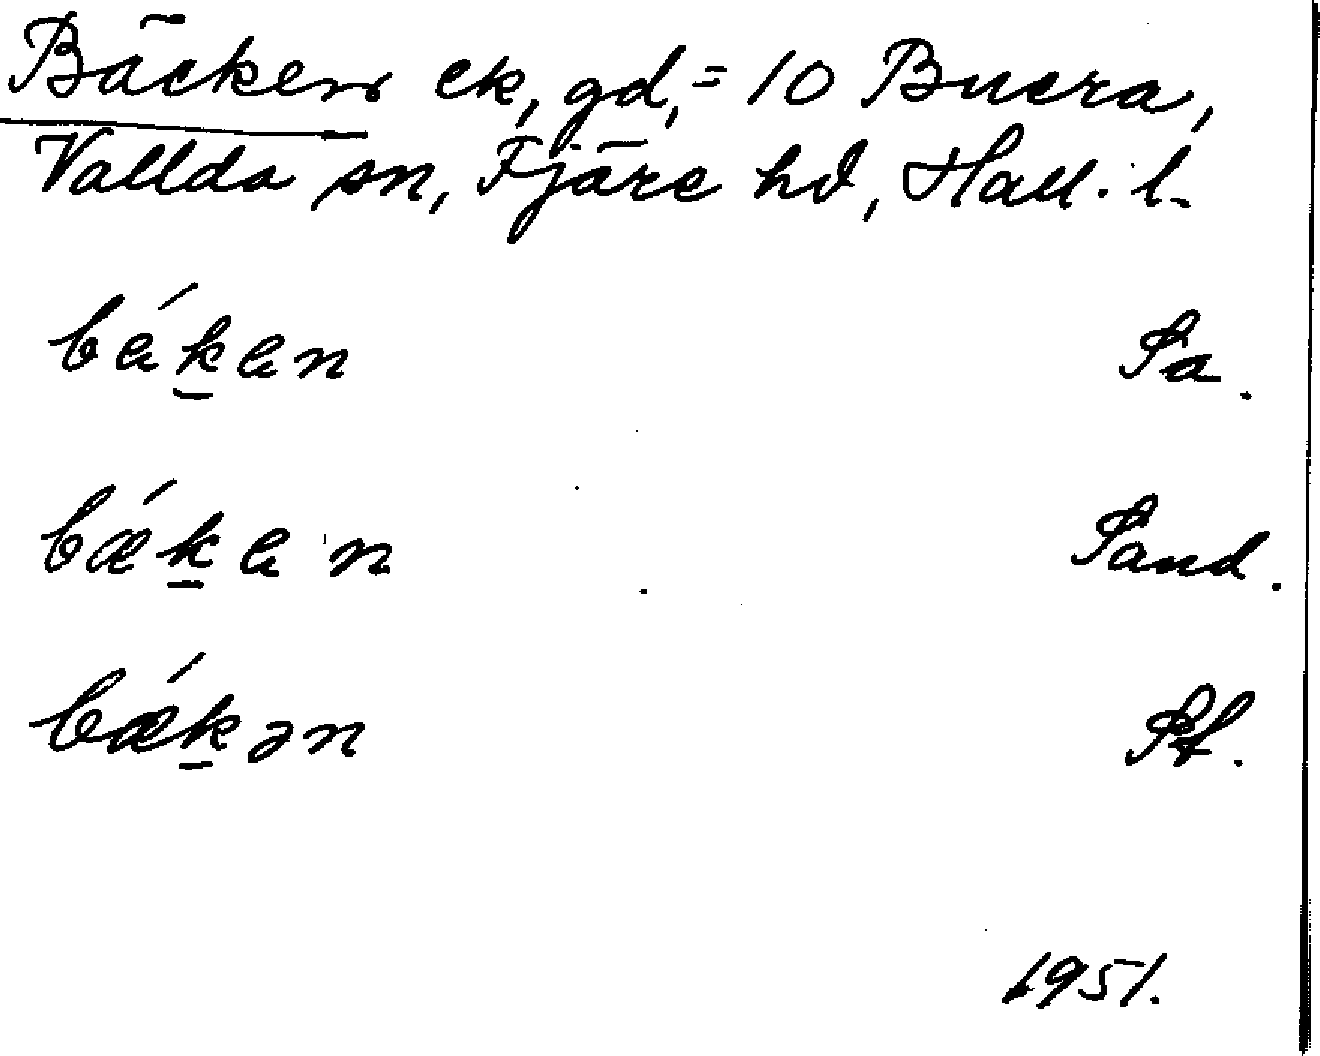 Bäcken ek, gd, = 10 Buera,
Vallda sn, Fjäre hd, Hall. l.
bák̠an Sa.
bǽk̠an Sand.
bǽk̠ən St.
1951.